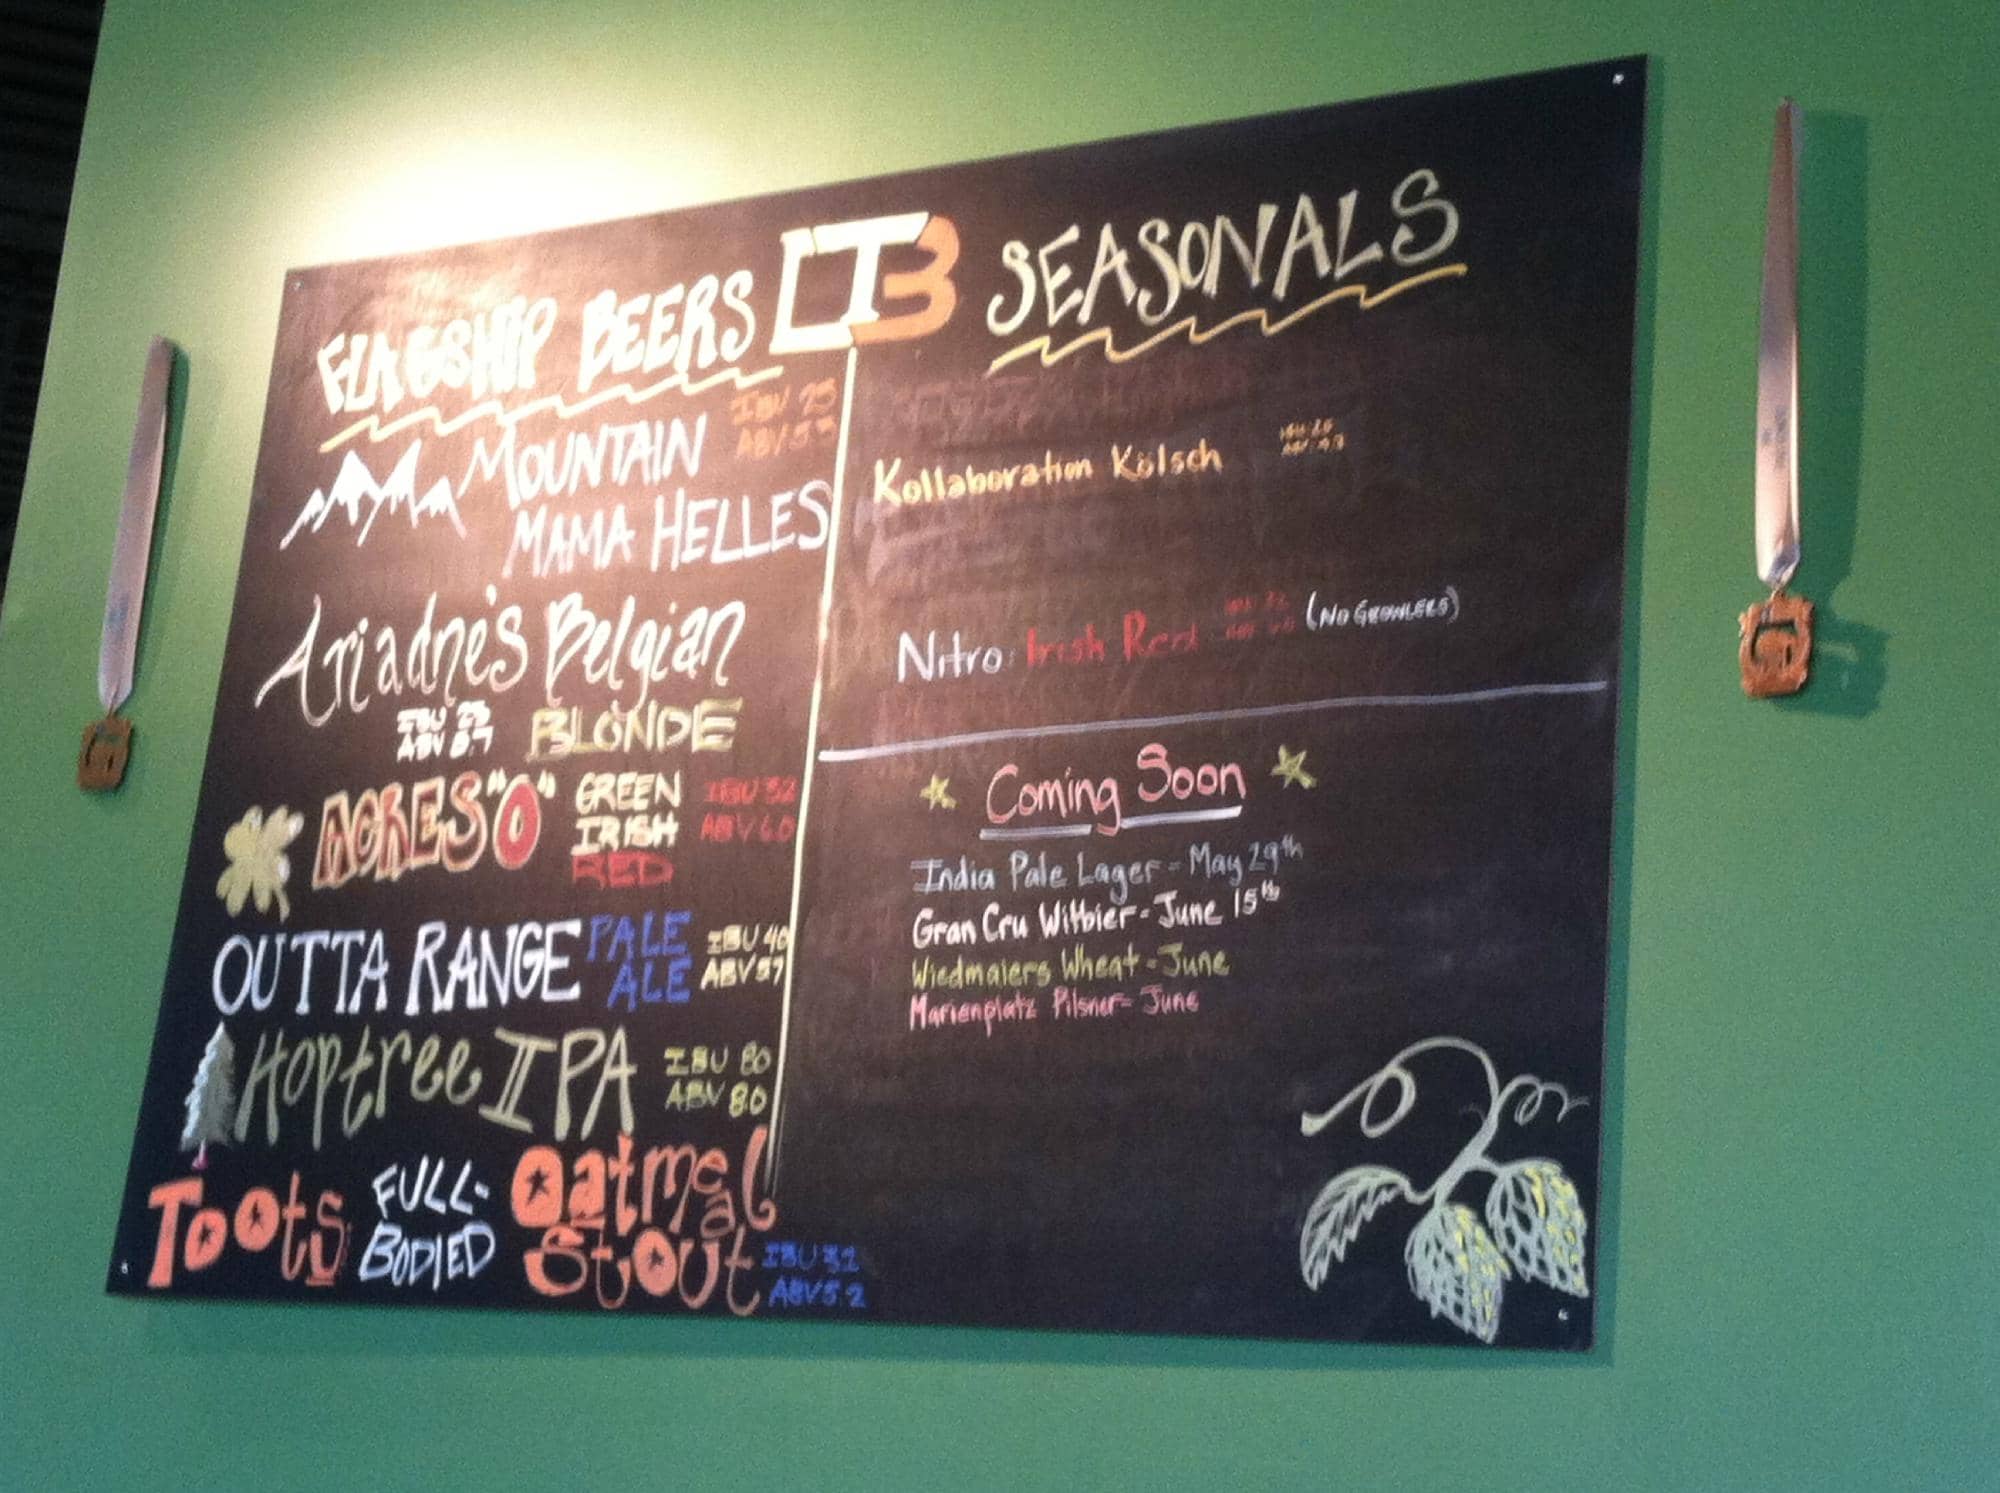 FLAGSHIP BEERS
MOUNTAIN
MAMA HELLES
IBU 25
Ariadne's Belgian
BLONDE
IBU 25
ABV 6.7
ACRES "O" GREEN
IRISH
RED
IBU 32
ABV 6.0
OUTTA RANGE PALE
ALE
IBU 40
ABV 5.7
Hoptree IIPA
IBU 80
ABV 8.0
Toots FULL-
BODIED
Oatmeal
Stout
IBU 32
ABV 5.2
LTB
SEASONALS
Kollaboration Kölsch
Nitro: Irish Red (NO GROWLERS)
Coming Soon
India Pale Lager - May 29th
Gran Cru Witbier - June 15th
Wiedmaiers Wheat - June
Marienplatz Pilsner - June